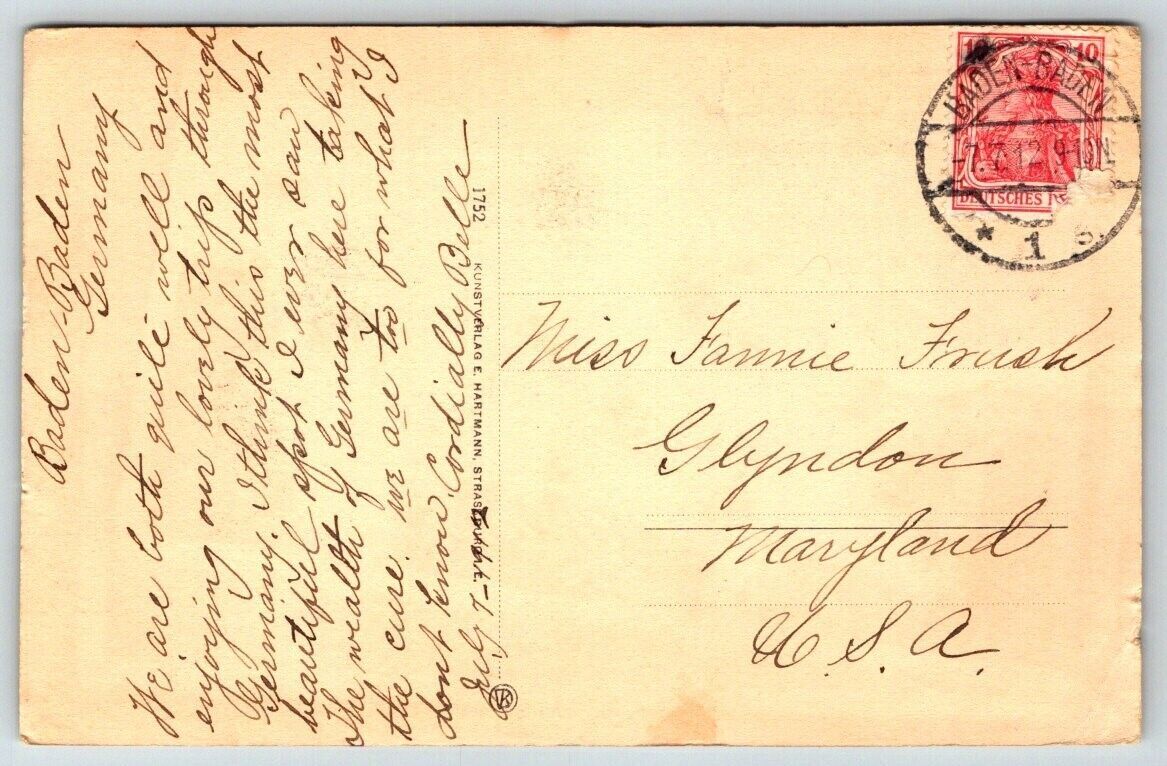 Baden-Baden
Germany
We are both quite well and
enjoying our lovely trip through
Germany. I think this the most
beautiful spot I ever saw
The wealth of Germany here taking
the cure. we are too for what I
dont know. Cordially Belle
July 7-
1752 KUNSTVERLAG E. HARTMANN, STRASSBURG I.E.
10 10
DEUTSCHES
BADEN-BADEN
-7.7.12. 9-10N
* 1 a.
Miss Fannie Frush
Glyndon
Maryland
U.S.A.